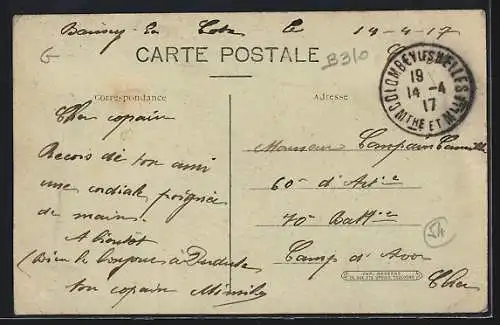 en le 14-4-17
CARTE POSTALE
B310
COLOMBEY-LES-BELLES
19
14 -4
17
MTHE ET MLLE
Correspondance
Adresse
Cher copain
Recois de ton ami
une cordiale poignée
de mains.
A bientot
(Bien le bonjour à
ton copain Mimile
Monsieur Camille
60e d'Artie
70e Battie
Camp d'Avor
Cher
54